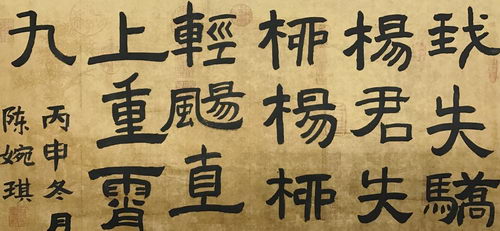 我失驕
楊君失
柳楊柳
輕颺直
上重霄
九
丙申冬月
陈婉琪